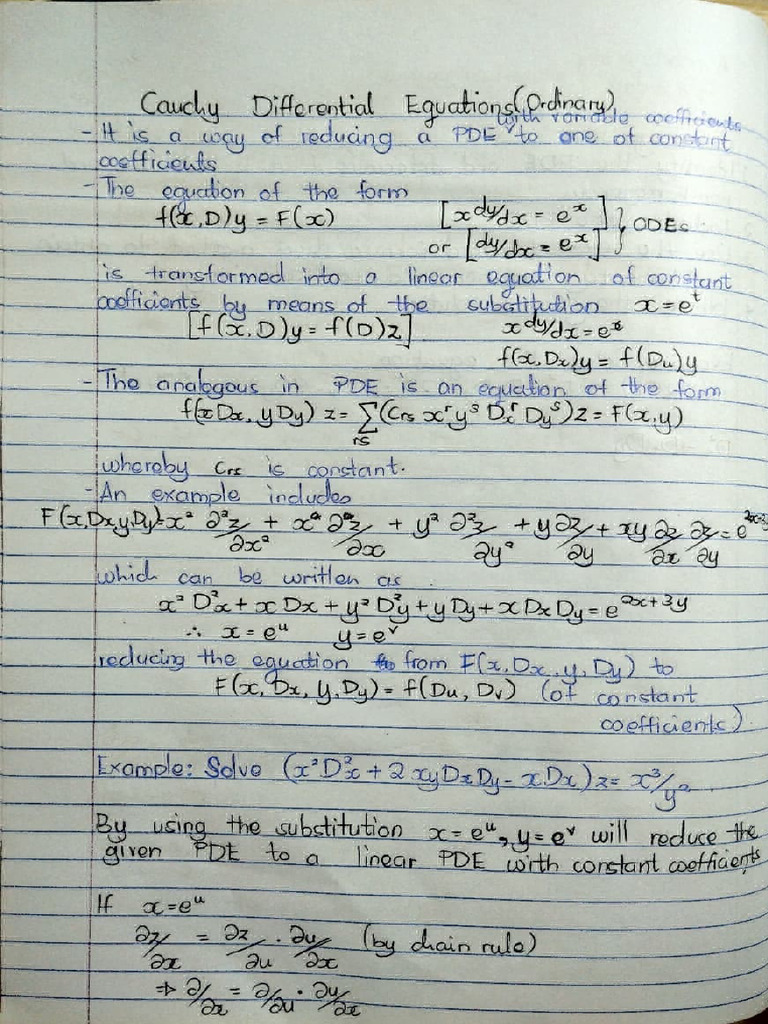 Cauchy Differential Equations (Ordinary)
with variable coefficients
- It is a way of reducing a PDE ˅ to one of constant
coefficients
- The equation of the form
f(x,D)y = F(x) [x dy/dx = e^x] } ODEs
or [dy/dx = e^x]
is transformed into a linear equation of constant
coefficients by means of the substitution x = e^t
[f(x,D)y = f(D)z] x dy/dx = e^x
f(x,Dx)y = f(Du)y
- The analogous in PDE is an equation of the form
f(xDx, yDy) z = ∑ (Crs x^r y^s Dx^r Dy^s) z = F(x,y)
rs
whereby Crs is constant.
- An example includes
F(x,Dx,y,Dy) = x² ∂²z/∂x² + x² ∂²z/∂x + y² ∂²z/∂y² + y ∂z/∂y + xy ∂z/∂x ∂z/∂y = e^2x+3y
which can be written as
x² D²x + x Dx + y² D²y + y Dy + x Dx Dy = e^2x+3y
∴ x = e^u y = e^v
reducing the equation from F(x, Dx, y, Dy) to
F(x, Dx, y, Dy) = f(Du, Dv) (of constant
coefficients)
Example: Solve (x² D²x + 2xy Dx Dy - x Dx) z = x³/y²
By using the substitution x = e^u, y = e^v will reduce the
given PDE to a linear PDE with constant coefficients
If x = e^u
∂z/∂x = ∂z/∂u · ∂u/∂x (by chain rule)
⇒ ∂/∂x = ∂/∂u · ∂u/∂x